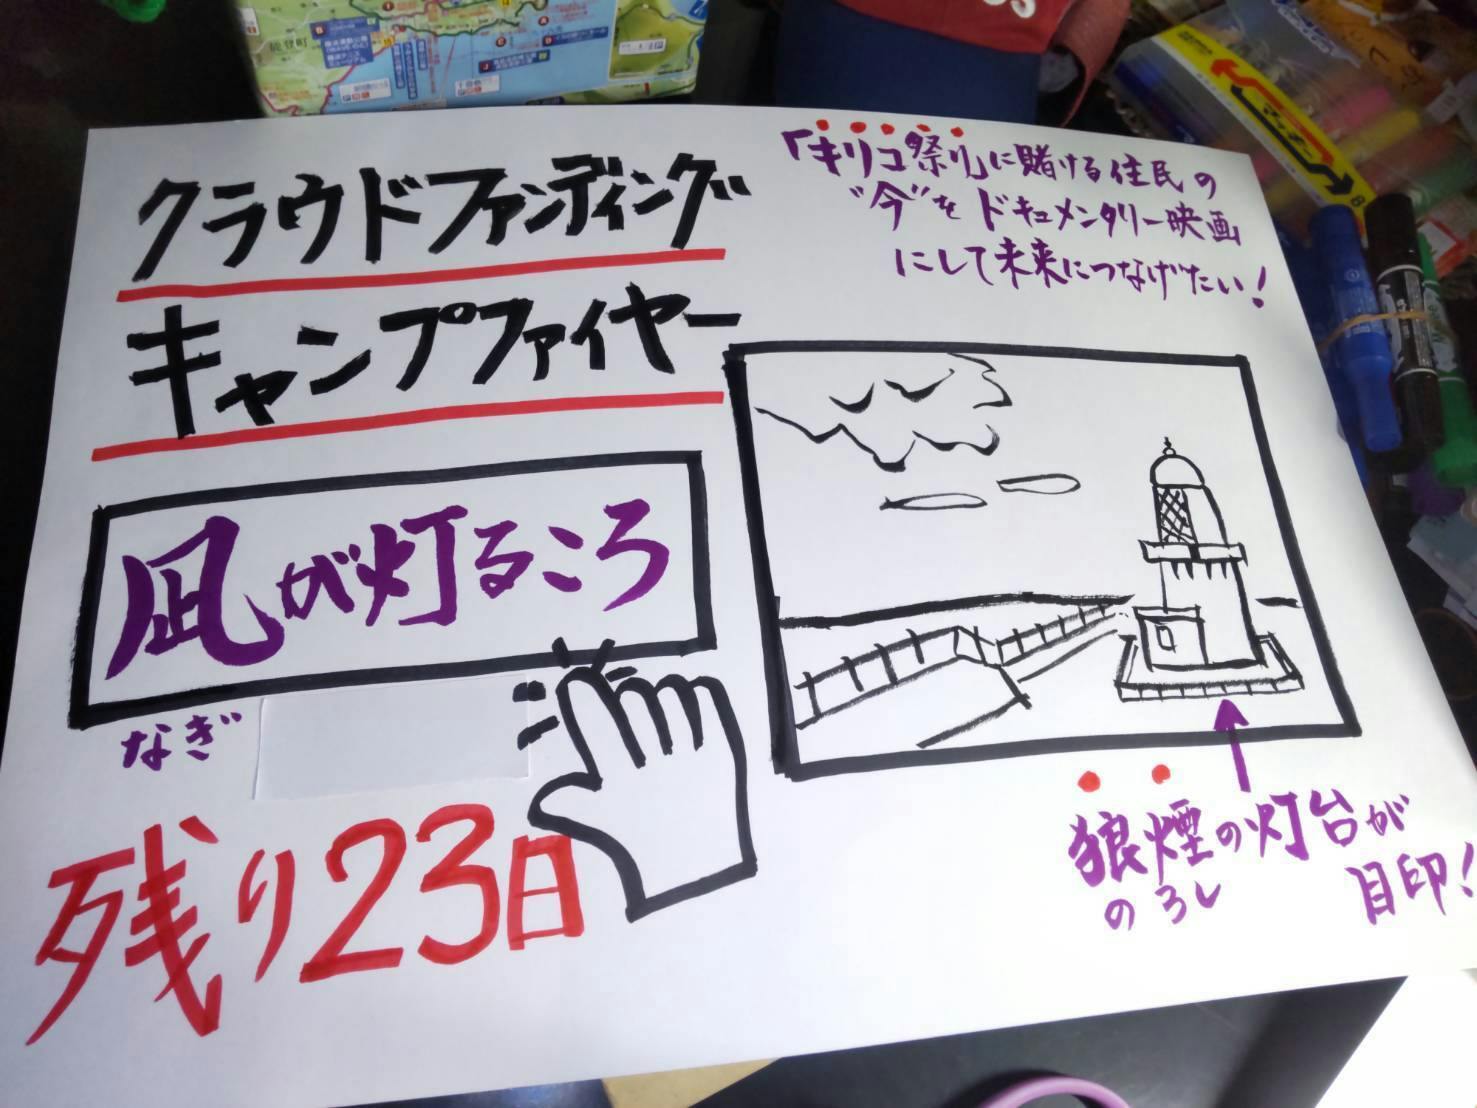 クラウドファンディング
キャンプファイヤー
「キリコ祭り」に賭ける住民の
"今"をドキュメンタリー映画
にして未来につなげたい!
凪が灯るころ
なぎ
残り23日
狼煙の灯台が
のろし
目印!